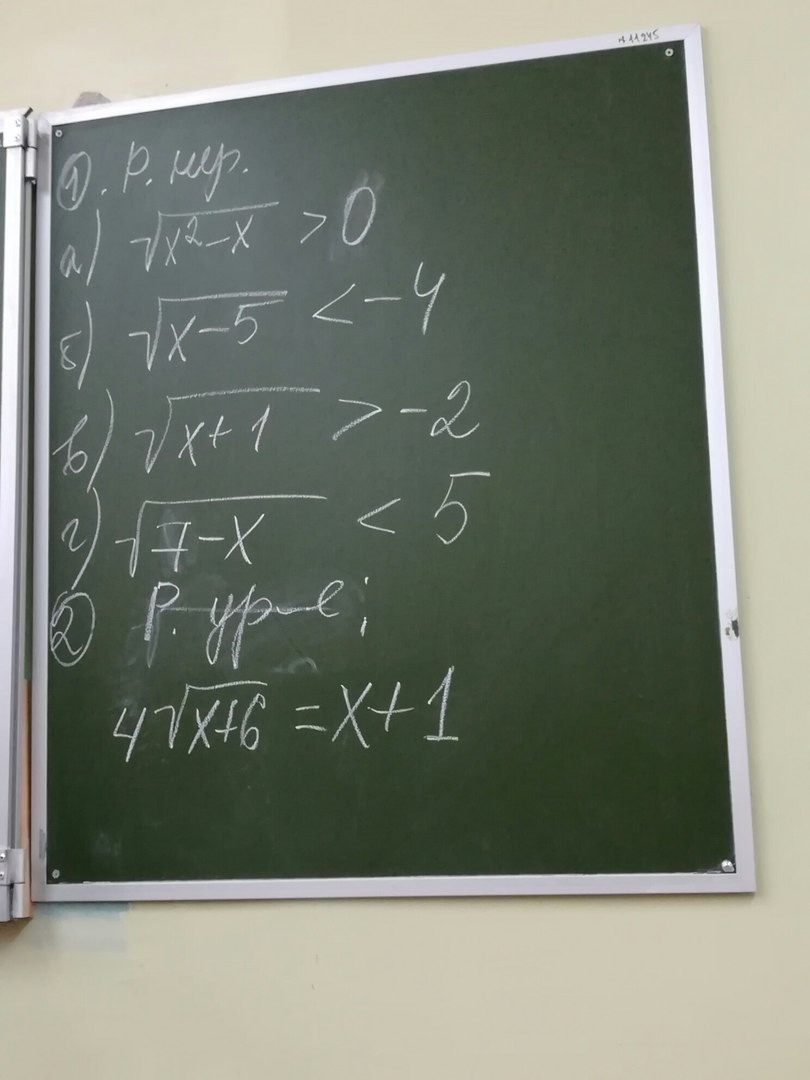 N 11245
①. Р. нер.
а) √x²-x > 0
б) √x-5 < -4
в) √x+1 > -2
г) √7-x < 5
② Р. ур-е;
4√x+6 = x+1